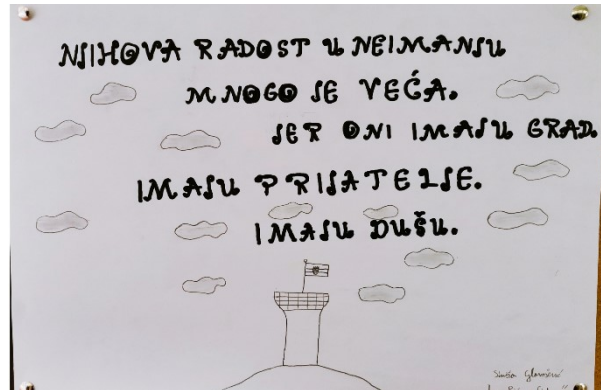 NJIHOVA RADOST U NEIMANJU
MNOGO JE VEĆA.
JER ONI IMAJU GRAD.
IMAJU PRIJATELJE.
IMAJU DUŠU.
Siniša Glavašević